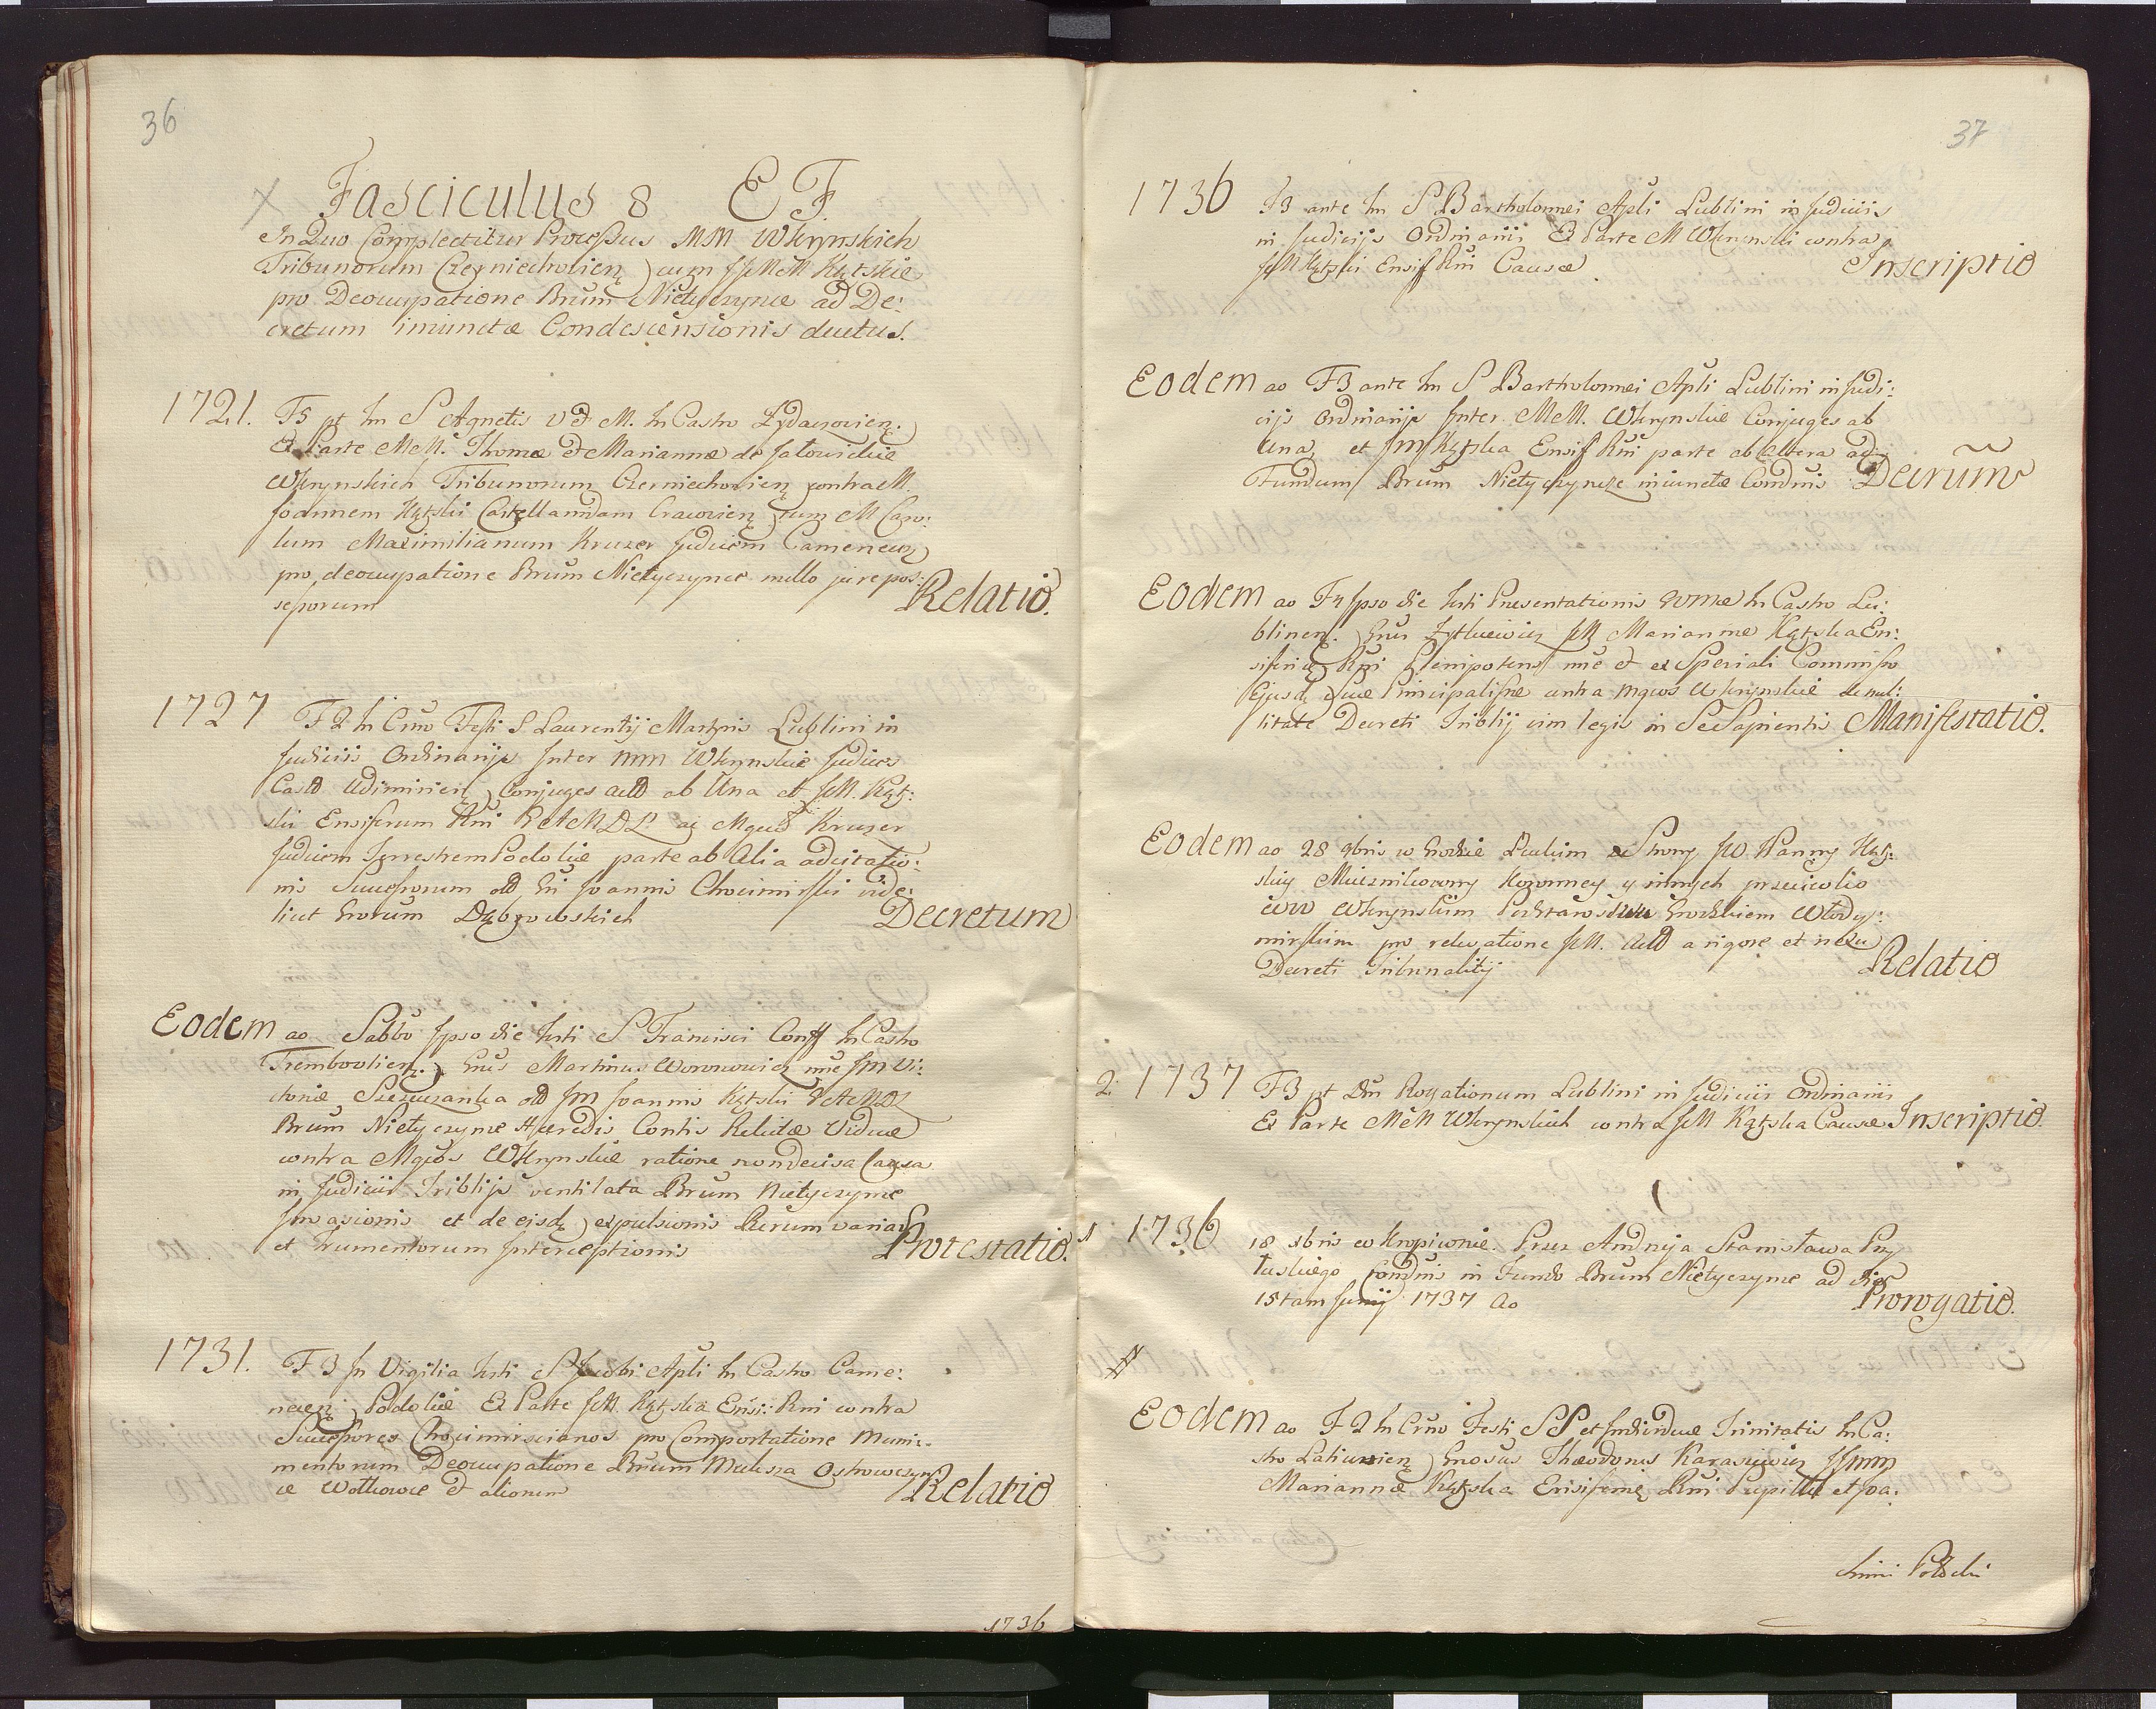 36
Fasciculus 8 E F
In Quo Complectitur Processus MM Wkrynskich
Tribunorum Czerniechovien cum JJMM Kątskie
pro Deoccupatione Brum Nietyczynce ad De:
cretum iniunctæ Condescensionis ductus.
1721. F5 pt In S Agnetis V et M. In Castro Zydaczovien.
Ex Parte MM. Thomæ et Mariannæ de Jatowickie
Wkrynskich Tribunorum Czerniechovien contra M.
Joannem Kątski Castellanidam Cracovien tum M Caro:
lum Maximilianum Kruzer Judicem Camenecen
pro deoccupatione Brum Nietyczynce nullo jure pos:
sessorum Relatio.
1727 F2 In Crno Festi S Laurentij Martyris Lublini in
Judiciis Ordinarijs Inter MM Wkrynskie Judices
Castr Vdimirien Conjuges ab Una et JM. Kątz:
ski Ensiferum Rni ac Mgcum Kruzer
Judicem Terrestrem Podoliæ parte ab Alia adcitatio:
nis Successorum Joannis Chocimirski vide:
licet Grorum Dąbrowskich Decretum
Eodem ao Sabbo Ipso die festi S Francisci Conff In Castro
Trembovlien. Gnus Martinus Woronowicz nne JM Vi:
ctoriæ Szczuczanka JM Joannis Kątski
Brum Nietyczynce Hæredis Contis Relictæ Viduæ
contra Mgcos Wkrynskie ratione nondecisa Causa
in Judiciis Triblijs ventilata Brum Nietyczynce
Invasionis et de eisdę expulsionis Rerum variar
et frumentorum Interceptionis Protestatio.
1731. F3 In Vigilia festi S Jacobi Apli In Castro Came:
necen Podoliæ Ex Parte JM. Kątska Ensi: Rni contra
Successores Chocimirscianos pro Comportatione Muni:
mentorum Deoccupatione Brum Mulisza Ostrowczyn
ce Wolkowce et aliorum Relatio
1736
37
1736 F3 ante In S Bartholomei Apli Lublini in Judiciis
in Judicijs Ordinariis Ex Parte M Wkrynski contra
JM Kątski Ensif Rni Causæ Inscriptio
Eodem ao F3 ante In S Bartholomei Apli Lublini in Judi:
cijs Ordinarijs Inter MM. Wkrynskie Conjuges ab
Una, et JM Kątska Ensif Rni parte ab altera ad
Fundum Brum Nietyczyncze iniunctæ Condnis Decrum
Eodem ao F4 Ipso die festi Presentationis BVMæ In Castro Lu:
blinen. Gnus Zytkiewicz JM Mariannæ Kątska En:
siferidę Rni Plenipotens nne et ex Speciali Commisso
Ejusdę suæ Principalisne contra Mgcos Wkrynskie de nul:
litate Decreti Triblij vim legis in Se Sapientis Manifestatio.
Eodem ao 28 9bris w Grodzie Łuckim ze Strony JO Panny Kątz:
skiy Miecznikowny Koronney y innych przeciwko
WW Wkrynskim Podstarościm Grodzkiem Włody:
mirskim pro relevatione JM. a rigore et nexu
Decreti Tribunalitij Relatio
2. 1737 F3 pt Dm Rogationum Lublini in Judiciis Ordinariis
Ex Parte MM Wkrynskich contra JM Kątska Causæ Inscriptio.
1 1736 18 xbris w Kropiwnie. Przez Andrzeja Stanisława Przy
łuskiego Condnis in Fundo Brum Nietyczynce ad die
15tam Junij 1737 Ao Prorogatio.
Eodem ao F2 In Crno Festi SS et Individuæ Trinitatis In Ca:
stro Laticzovien Gnosus Theodorus Karasiewicz JJMM
Mariannæ Kątska Ensiferidę Rni Pupillæ et Joa:
chimi Potocki